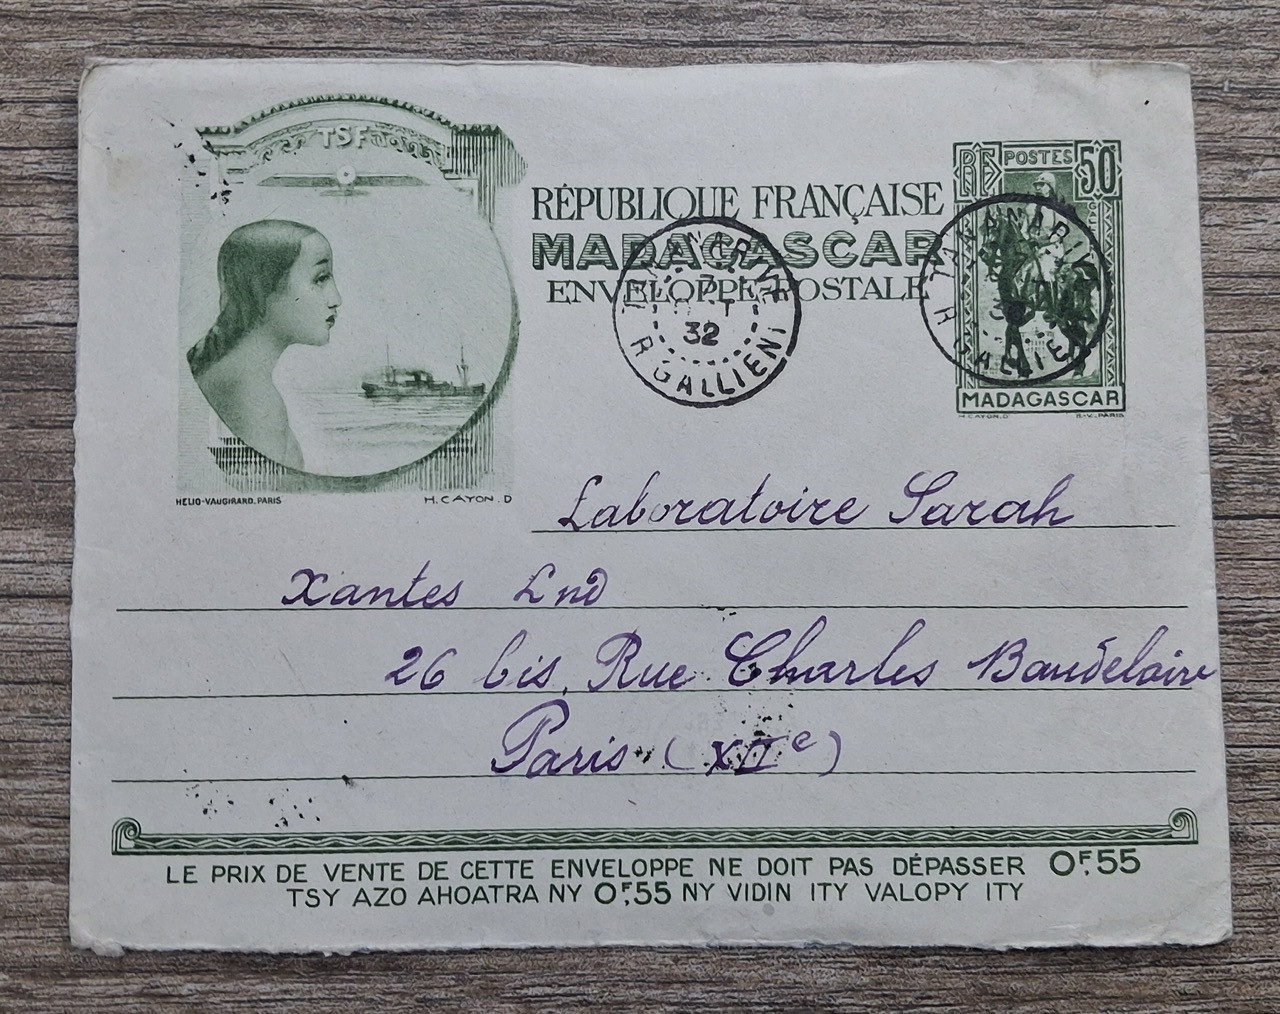 TSF
RF POSTES 50c
RÉPUBLIQUE FRANÇAISE
MADAGASCAR
ENVELOPPE POSTALE
TANANARIVE
32
R. GALLIENI
TANANARIVE
32
R. GALLIENI
MADAGASCAR
H. CAYON. D
H-V. PARIS
HELIO-VAUGIRARD. PARIS
H. CAYON. D
Laboratoire Sarah
Xantes Lnd
26 bis, Rue Charles Baudelaire
Paris (XIIe)
LE PRIX DE VENTE DE CETTE ENVELOPPE NE DOIT PAS DÉPASSER 0F,55
TSY AZO AHOATRA NY 0F,55 NY VIDIN ITY VALOPY ITY